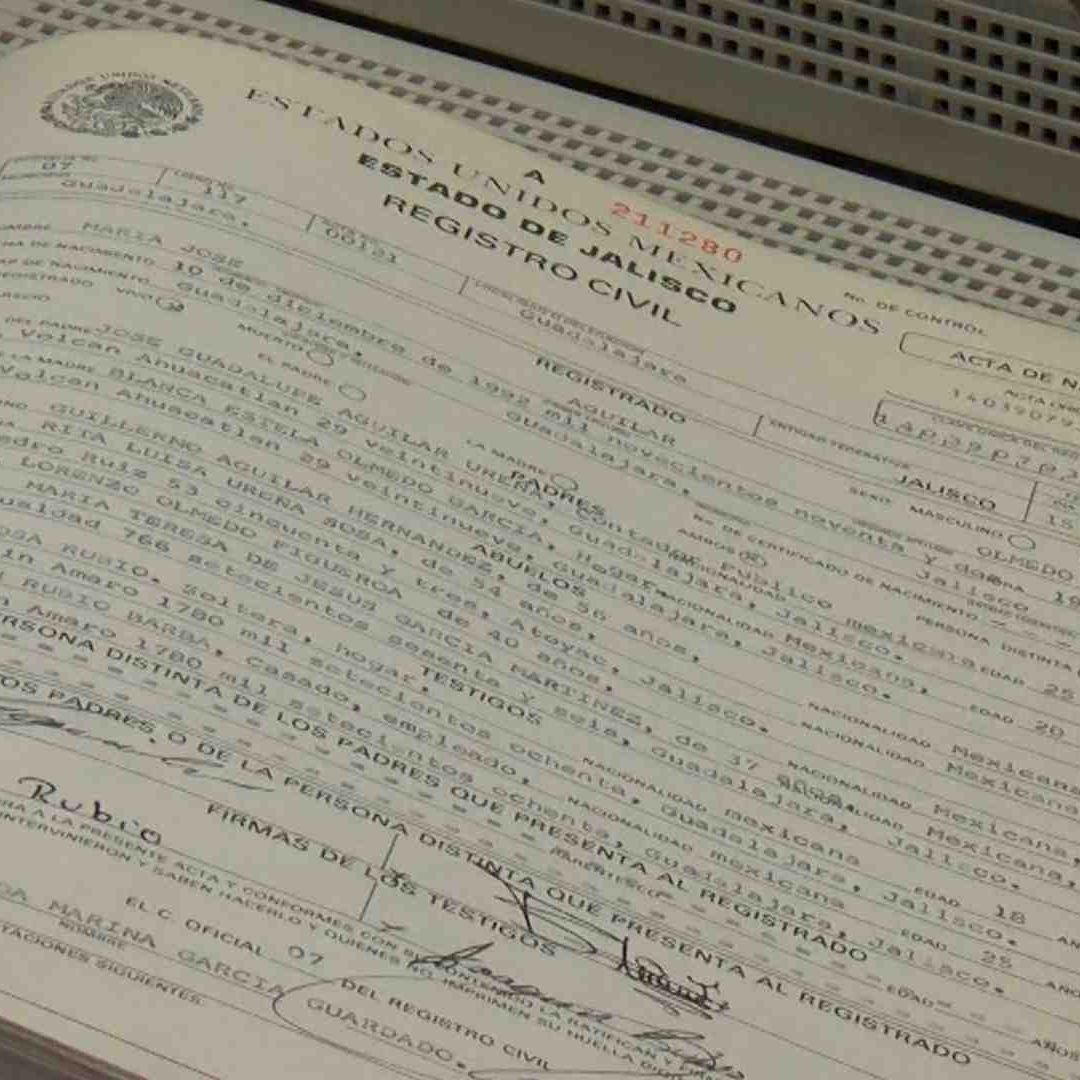 ESTADOS UNIDOS MEXICANOS
A 211280
ESTADO DE JALISCO
REGISTRO CIVIL
No. DE CONTROL
ACTA DE N
07 117 00121 Guadalajara JALISCO 15
Guadalajara.
ENTIDAD FEDERATIVA
REGISTRADO
MARIA JOSE AGUILAR OLMEDO
DE NACIMIENTO 10 de diciembre de 1992 mil novecientos noventa y dos
DE NACIMIENTO Guadalajara, Guadalajara, Jalisco
VIVO MUERTO SEXO MASCULINO
No. DE CERTIFICADO DE NACIMIENTO
EL PADRE LA MADRE AMBOS PERSONA DISTINTA
PADRES
DEL PADRE JOSE GUADALUPE AGUILAR UREÑA, Contador Publico NACIONALIDAD mexicana EDAD 25
Volcan Ahuacatlan 29 veintinueve, Guadalajara, Jalisco.
LA MADRE BLANCA ESTELA OLMEDO GARCIA, Hogar, NACIONALIDAD Mexicana, EDAD 20
Volcan Ahuacatlan 29 veintinueve, Guadalajara, Jalisco.
ABUELOS
GUILLERMO AGUILAR HERNANDEZ, de 56 años, NACIONALIDAD Mexicana
RITA LUISA UREÑA SOSA, de 54 años, NACIONALIDAD Mexicana
edro Ruiz 53 cinquenta y tres, Atoyac, Jalisco.
LORENZO OLMEDO FIGUEROA de 40 años, NACIONALIDAD Mexicana,
MARIA TERESA DE JESUS GARCIA MARTINEZ, de 37 años, NACIONALIDAD Mexicana,
ualdad 766 setecientos sesenta y seis, Guadalajara, Jalisco.
TESTIGOS
OSA RUBIO, Soltera, hogar, NACIONALIDAD mexicana EDAD 18 AÑ
in Amaro 1780 mil setecientos ochenta, Guadalajara, Jalisco.
RUBIO BARBA, Casado, empleado, NACIONALIDAD mexicana EDAD 25 AÑO
n Amaro 1780 mil setecientos ochenta, Guadalajara, Jalisco.
ERSONA DISTINTA DE LOS PADRES QUE PRESENTA AL REGISTRADO
PARENTESCO EDAD AÑOS
OS PADRES, O DE LA PERSONA DISTINTA QUE PRESENTA AL REGISTRADO
FIRMAS DE LOS TESTIGOS
Rubio
RA A LA PRESENTE ACTA Y CONFORMES CON SU CONTENIDO LA RATIFICAN Y
INTERVINIERON Y SABEN HACERLO Y QUIENES NO, IMPRIMEN SU HUELLA
EL C. OFICIAL 07 DEL REGISTRO CIVIL
DA MARINA GARCIA GUARDADO.
NOMBRE
TACIONES SIGUIENTES